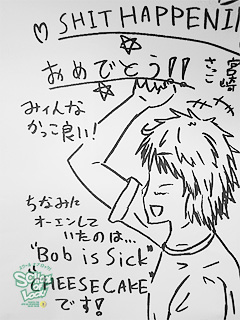 ♡ SHIT HAPPENI
おめでとう!!
宮崎
さこ
みぃんな
かっこ良い!
ちなみに
オーエンして
いたのは…
"Bob is Sick"
"CHEESECAKE"
です!